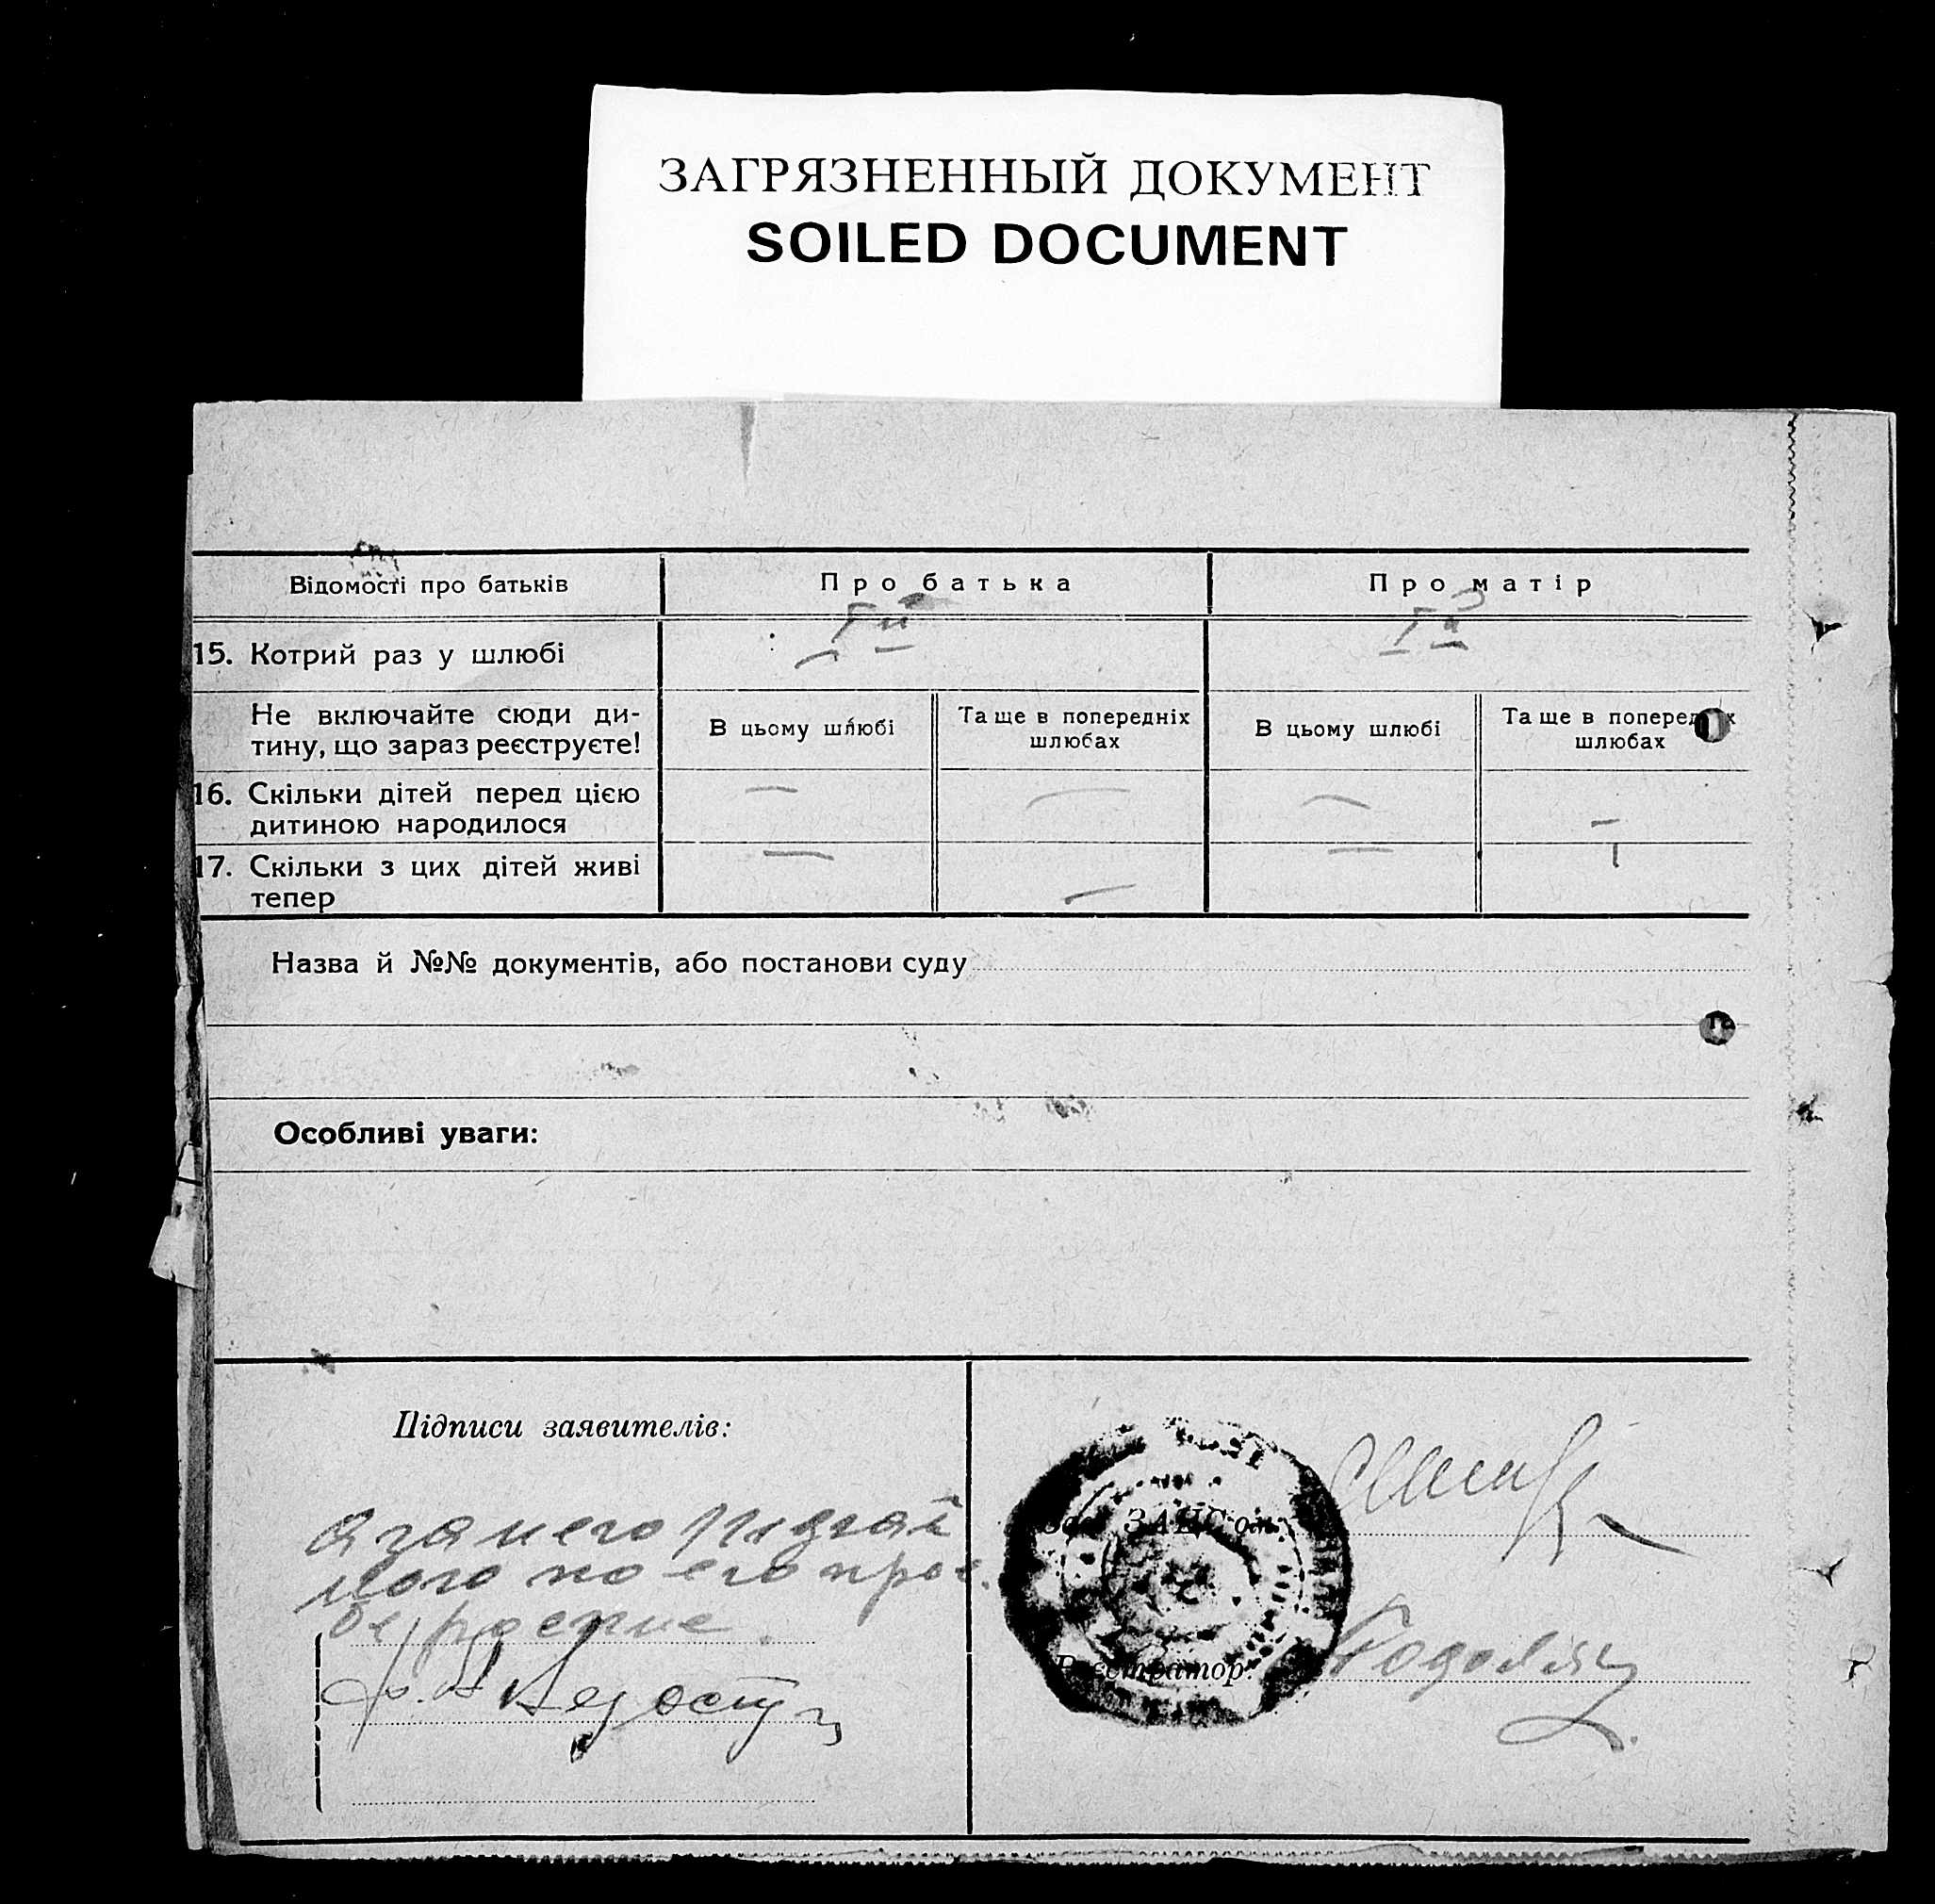 ЗАГРЯЗНЕННЫЙ ДОКУМЕНТ
SOILED DOCUMENT
Відомості про батьків
Про батька
Про матір
15. Котрий раз у шлюбі
Iй
Iй
Не включайте сюди ди-
тину, що зараз реєструєте!
В цьому шлюбі
Та ще в попередніх
шлюбах
В цьому шлюбі
Та ще в попередніх
шлюбах
16. Скільки дітей перед цією
дитиною народилося
— — — —
17. Скільки з цих дітей живі
тепер
— — —
Назва й №№ документів, або постанови суду
Особливі уваги:
Підписи заявителів:
а за него
по его
Зав. ЗАГСом
Реєстратор: